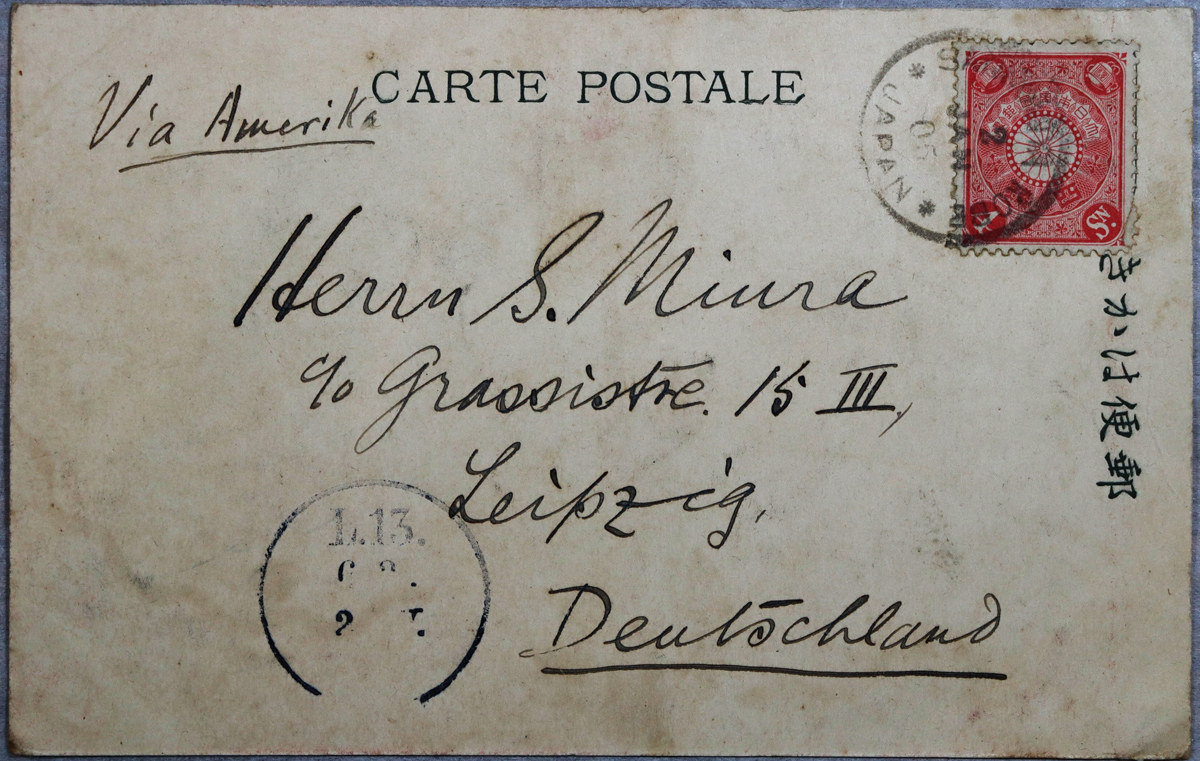 CARTE POSTALE
Via Amerika
JAPAN
2 JAN
05
4 Sn.
Herrn S. Miura
c/o Grassistre. 15 III,
Leipzig,
Deutschland
L.13.
郵便はかき